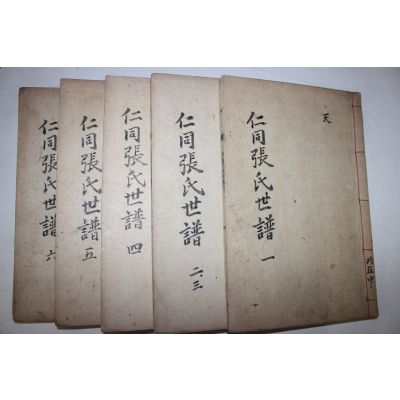 天
仁同張氏世譜 一
共五中
仁同張氏世譜 二、三
仁同張氏世譜 四
仁同張氏世譜 五
仁同張氏世譜 六